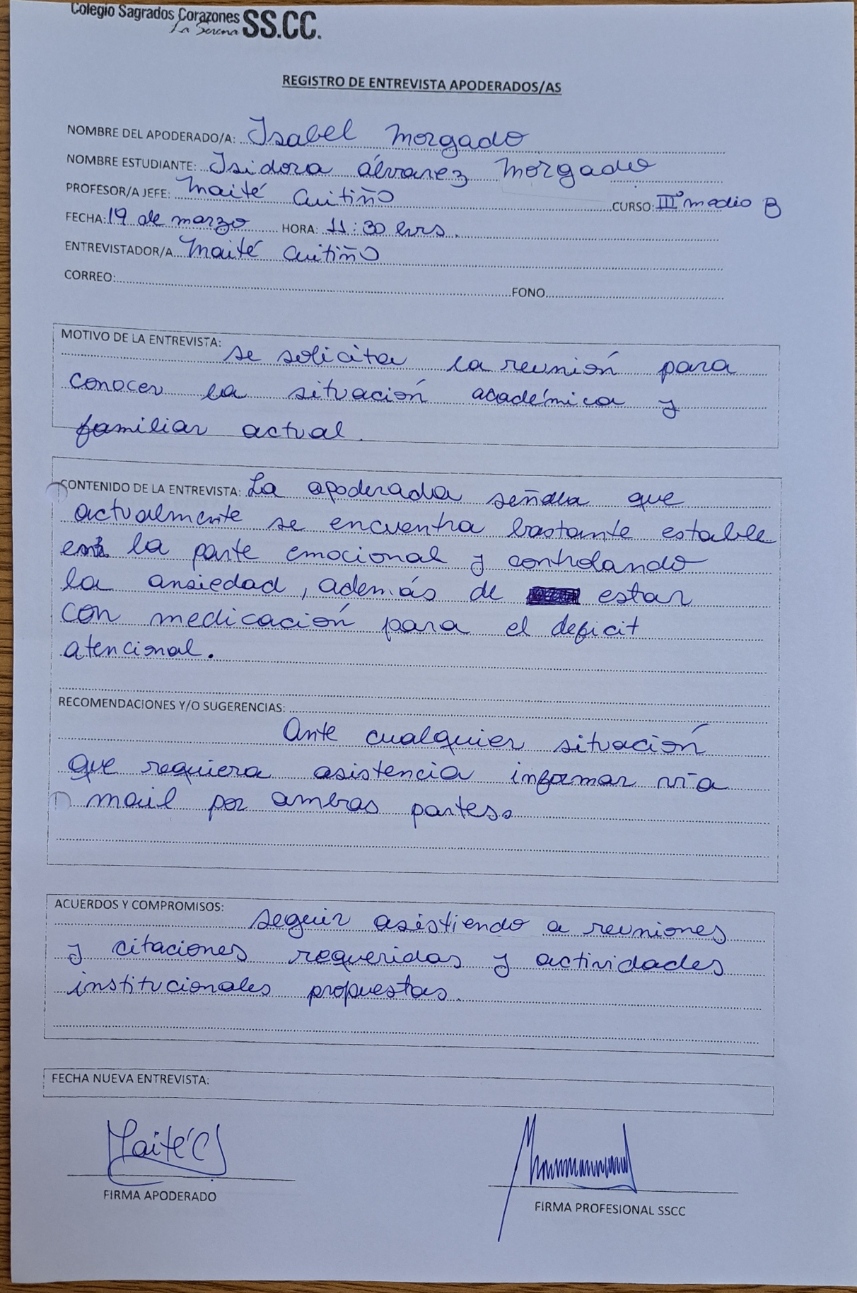 Colegio Sagrados Corazones SS.CC.
La Serena
REGISTRO DE ENTREVISTA APODERADOS/AS
NOMBRE DEL APODERADO/A: Isabel Morgado
NOMBRE ESTUDIANTE: Isidora álvarez Morgado
PROFESOR/A JEFE: Maité Cuitiño CURSO: IIIº medio B
FECHA: 19 de marzo HORA: 11:30 hrs.
ENTREVISTADOR/A Maité Cuitiño
CORREO: FONO
MOTIVO DE LA ENTREVISTA:
se solicita la reunión para
conocer la situación académica y
familiar actual.
CONTENIDO DE LA ENTREVISTA: La apoderada señala que
actualmente se encuentra bastante estable
en la parte emocional y controlando
la ansiedad, además de estar
con medicación para el deficit
atencional.
RECOMENDACIONES Y/O SUGERENCIAS:
Ante cualquier situación
que requiera asistencia informar vía
mail por ambas partes.
ACUERDOS Y COMPROMISOS:
seguir asistiendo a reuniones
y citaciones requeridas y actividades
institucionales propuestas.
FECHA NUEVA ENTREVISTA:
Maité C
FIRMA APODERADO
FIRMA PROFESIONAL SSCC